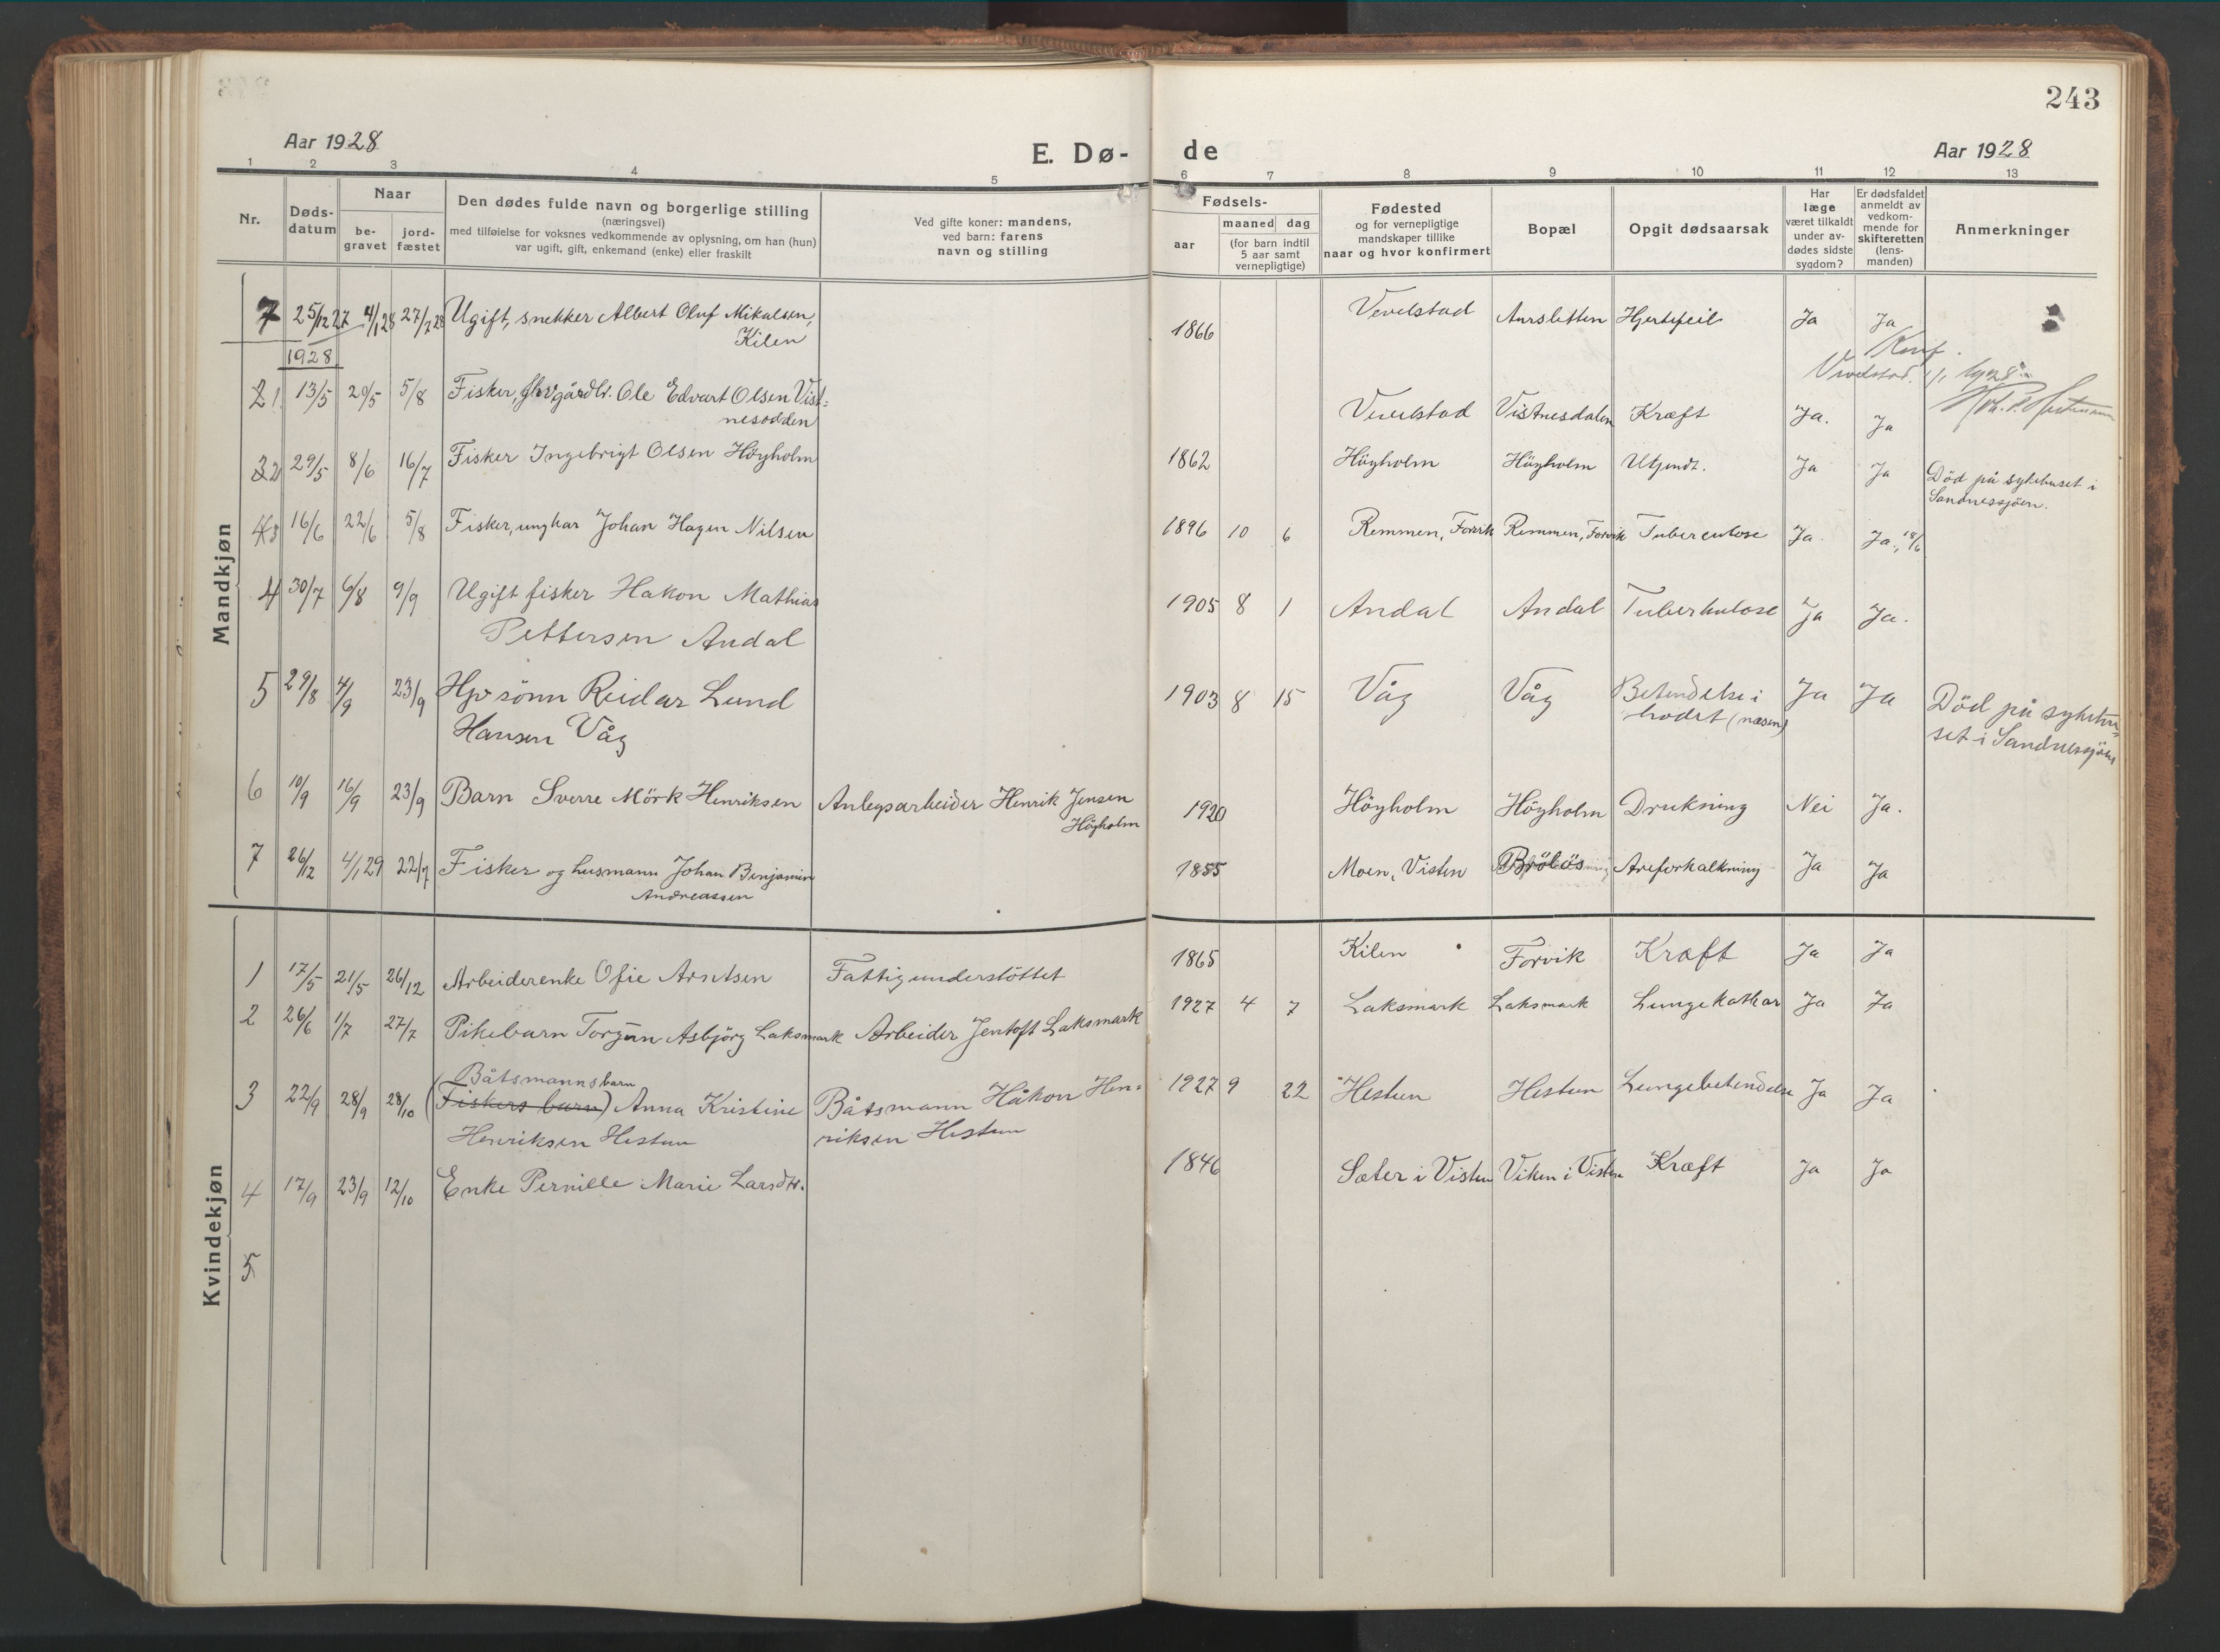 243
Aar 1928
E. Dø-
de
Aar 1928
1 2 3 4 5 6 7 8 9 10 11 12 13
Nr.
Døds-
datum
Naar
be-
gravet
jord-
fæstet
Den dødes fulde navn og borgerlige stilling
(næringsvei)
med tilføielse for voksnes vedkommende av oplysning, om han (hun)
var ugift, gift, enkemand (enke) eller fraskilt
Ved gifte koner: mandens,
ved barn: farens
navn og stilling
Fødsels-
aar
maaned dag
(for barn indtil
5 aar samt
vernepligtige)
Fødested
og for vernepligtige
mandskaper tillike
naar og hvor konfirmert
Bopæl
Opgit dødsaarsak
Har
læge
været tilkaldt
under av-
dødes sidste
sygdom?
Er dødsfaldet
anmeldt av
vedkom-
mende for
skifteretten
(lens-
manden)
Anmerkninger
Mandkjøn
7 25/12 27 4/1 28 27/7 28 Ugift, snekker Albert Oluf Mikalsen, 1866 Vevelstad Aursletten Hjertefeil Ja Ja
Kilen
1928
Konf.
Vevelstad. 1/1 1928
1 13/5 20/5 5/8 Fisker, Ole Edvart Olsen Vist= Vevelstad Vistnesdalen Kræft Ja. Ja
nesodden
2 29/5 8/6 16/7 Fisker Ingebrigt Olsen Höyholm 1862 Höyholm Höyholm Ja Ja Död på sykehuset i
Sandnessjöen.
3 16/6 22/6 5/8 Fisker, ungkar Johan Hagen Nilsen 1896 10 6 Remmen, Forvik Remmen, Forvik Tuberculose Ja. Ja., 18/6
4 30/7 6/8 9/9 Ugift fisker Hakon Mathias 1905 8 1 Andal Andal Tuberkulose Ja Ja.
Pettersen Andal
5 29/8 4/9 23/9 Hpv sönn Reidar Lund 1903 8 15 Våg Våg Betendelse i Ja Ja Död på sykehu=
Hansen Våg hodet (næsen) set i Sandnessjöen
6 10/9 16/9 23/9 Barn Sverre Mörk Henriksen Anlegsarbeider Henrik Jensen 1920 Höyholm Höyholm Drukning Nei Ja.
Höyholm
7 26/12 4/1 29 22/7 Fisker og husmann Johan Benjamin 1855 Moen, Visten Brölös Areforkalkning Ja Ja
Andreassen
Kvindekjøn
1 17/5 21/5 26/12 Arbeiderenke Ofie Arntsen Fattigunderstöttet 1865 Kilen Forvik Kræft Ja Ja
2 26/6 1/7 27/7 Pikebarn Torgun Asbjörg Laksmark Arbeider Jentoft Laksmark 1927 4 7 Laksmark Laksmark Lungekathar Ja Ja
Båtsmannsbarn
3 22/9 28/9 28/10 (Fiskers barn) Anna Kristine Båtsmann Håkon Hen= 1927 9 22 Hestun Hestun Lungebetendelse Ja Ja
Henriksen Hestun riksen Hestun
4 17/9 23/9 12/10 Enke Pernille Marie Larsdtr. 1846 Sæter i Visten Viken i Visten Kræft Ja Ja
5